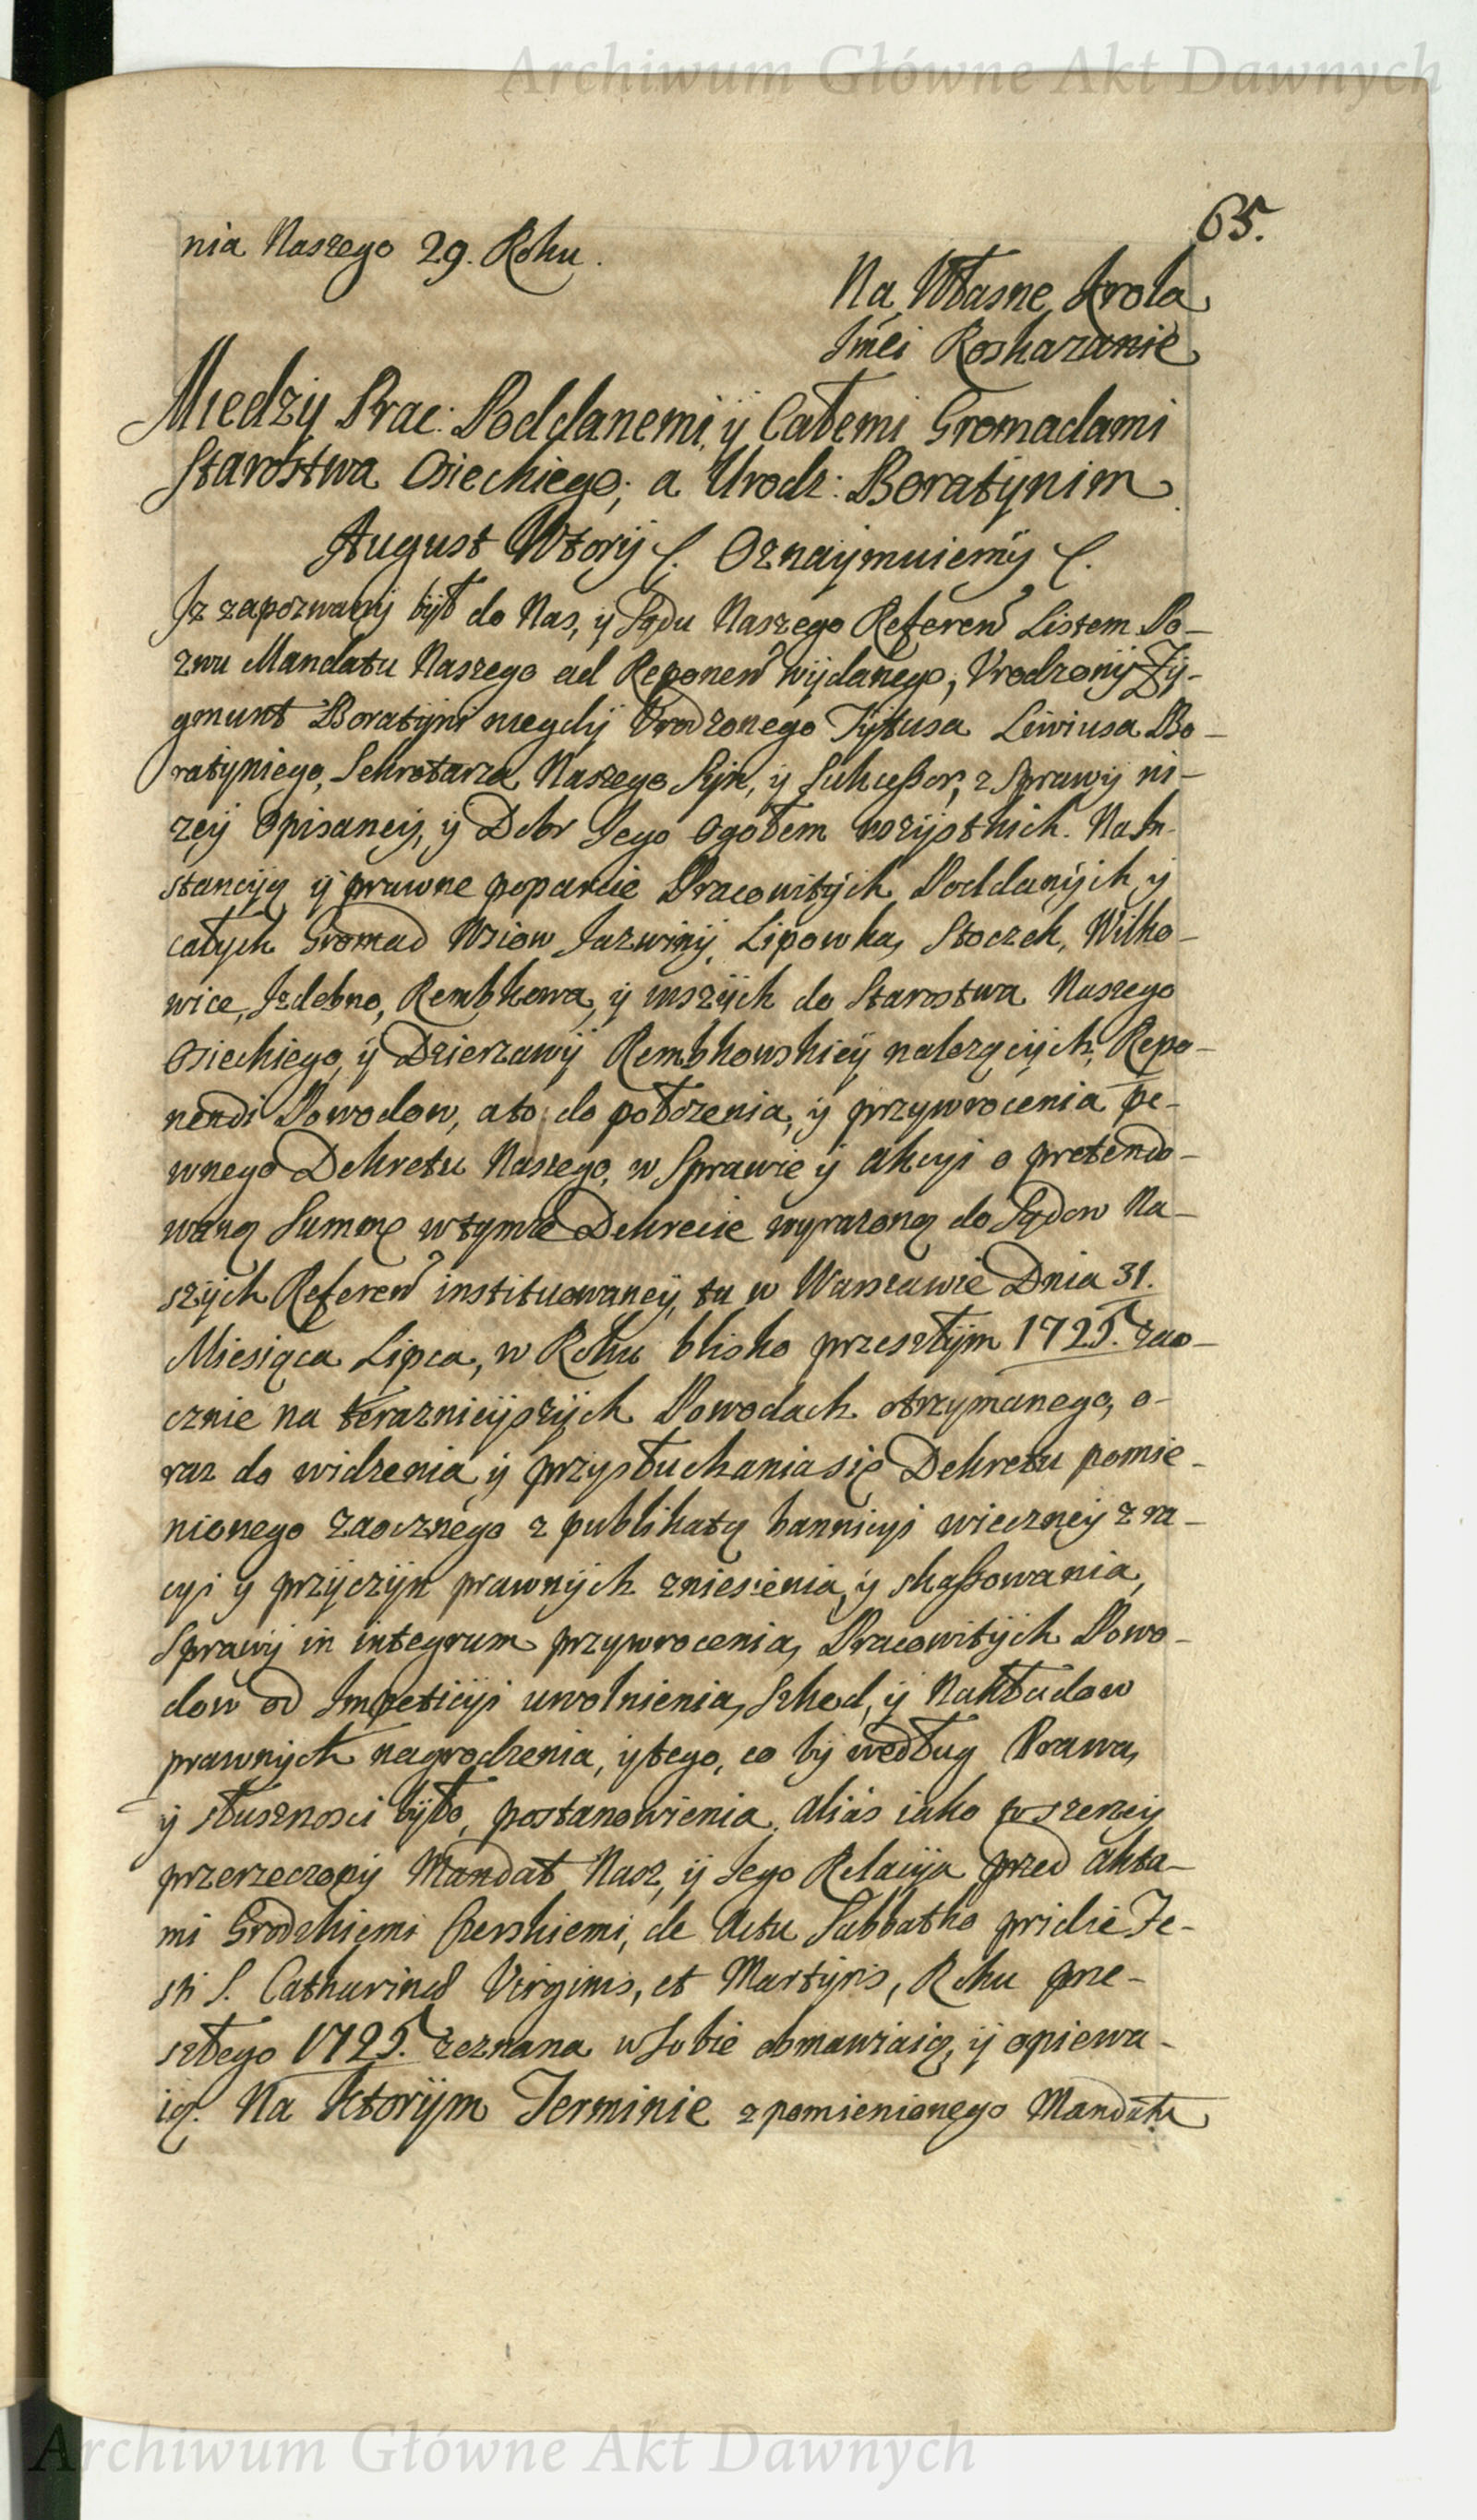 Archiwum Główne Akt Dawnych
65.
nia Naszego 29. Roku.
Na Własne Krola
Jmći Roskazanie
Miedzy Prac: Poddanemi, ÿ Całemi Gromadami
Starostwa Osieckiego; a Urodz: Boratÿnim
August Wtorÿ &c. Oznaÿmuiemÿ &c.
Jz zapozwanÿ bÿł do Nas, ÿ Sądu Naszego Referen͠ Listem Po-
zwu Mandatu Naszego ad Reponen͠ wÿdanego, Vrodzonÿ Zÿ-
gmunt Boratÿni niegdÿ Vrodzonego Tÿtusa Liwiusa Bo-
ratÿniego, Sekretarza Naszego Sÿn, ÿ Sukceßor, z Sprawÿ ni-
zeÿ Opisaneÿ, ÿ Dobr Jego Ogołem wszÿstkich. Na In-
stancÿą ÿ prawne poparcie Pracowitÿch Poddanÿch ÿ
całych Gromad Wsiow Jazwinÿ, Lipowka, Stoczek, Wilko-
wice, Jzdebno, Rembkowa, ÿ inszÿch do Starostwa Naszego
Osieckiego, ÿ Dzierzawÿ Rembkowskieÿ nalezącÿch, Repo-
nendi Powodow, a to: do połozenia, ÿ przywrocenia pe-
wnego Dekretu Naszego, w Sprawie ÿ akcyi o pretendo-
waną Summę w tymze Dekrecie wyrazoną do Sądow Na-
szÿch Referen͠ instituowaneÿ, tu w Warszawie Dnia 31.
Miesiąca Lipca, w Roku blisko przeszłÿm 1725. zao-
cznie na teraznieÿszÿch Powodach otrzymanego, o-
raz do widzenia, ÿ przysłuchania się Dekretu pomie-
nionego zaocznego z publikatą bannicyi wieczneÿ z ra-
cyi ÿ przÿczÿn prawnÿch zniesienia, ÿ skaßowania,
Sprawÿ in integrum przywrocenia, Pracowitÿch Powo-
dow od Impeticÿi uwolnienia, Szkod, ÿ Nakładow
prawnÿch nagrodzenia, ÿ tego, co bÿ według Prawa,
ÿ słusznosci bÿło, postanowienia. alias iako w szerzeÿ
przerzeczonÿ Mandat Nasz, ÿ Jego Relacÿja przed Akta-
mi Grodzkiemi Czerskiemi, de Actu Sabbatho pridie Fe-
sti S. Catharinæ Virginis, et Martÿris, Roku prze-
szłego 1725. zeznana w Sobie obmawiaią, ÿ opiewa-
ią. Na Ktorÿm Terminie z pomienionego Mandatu
Archiwum Główne Akt Dawnych